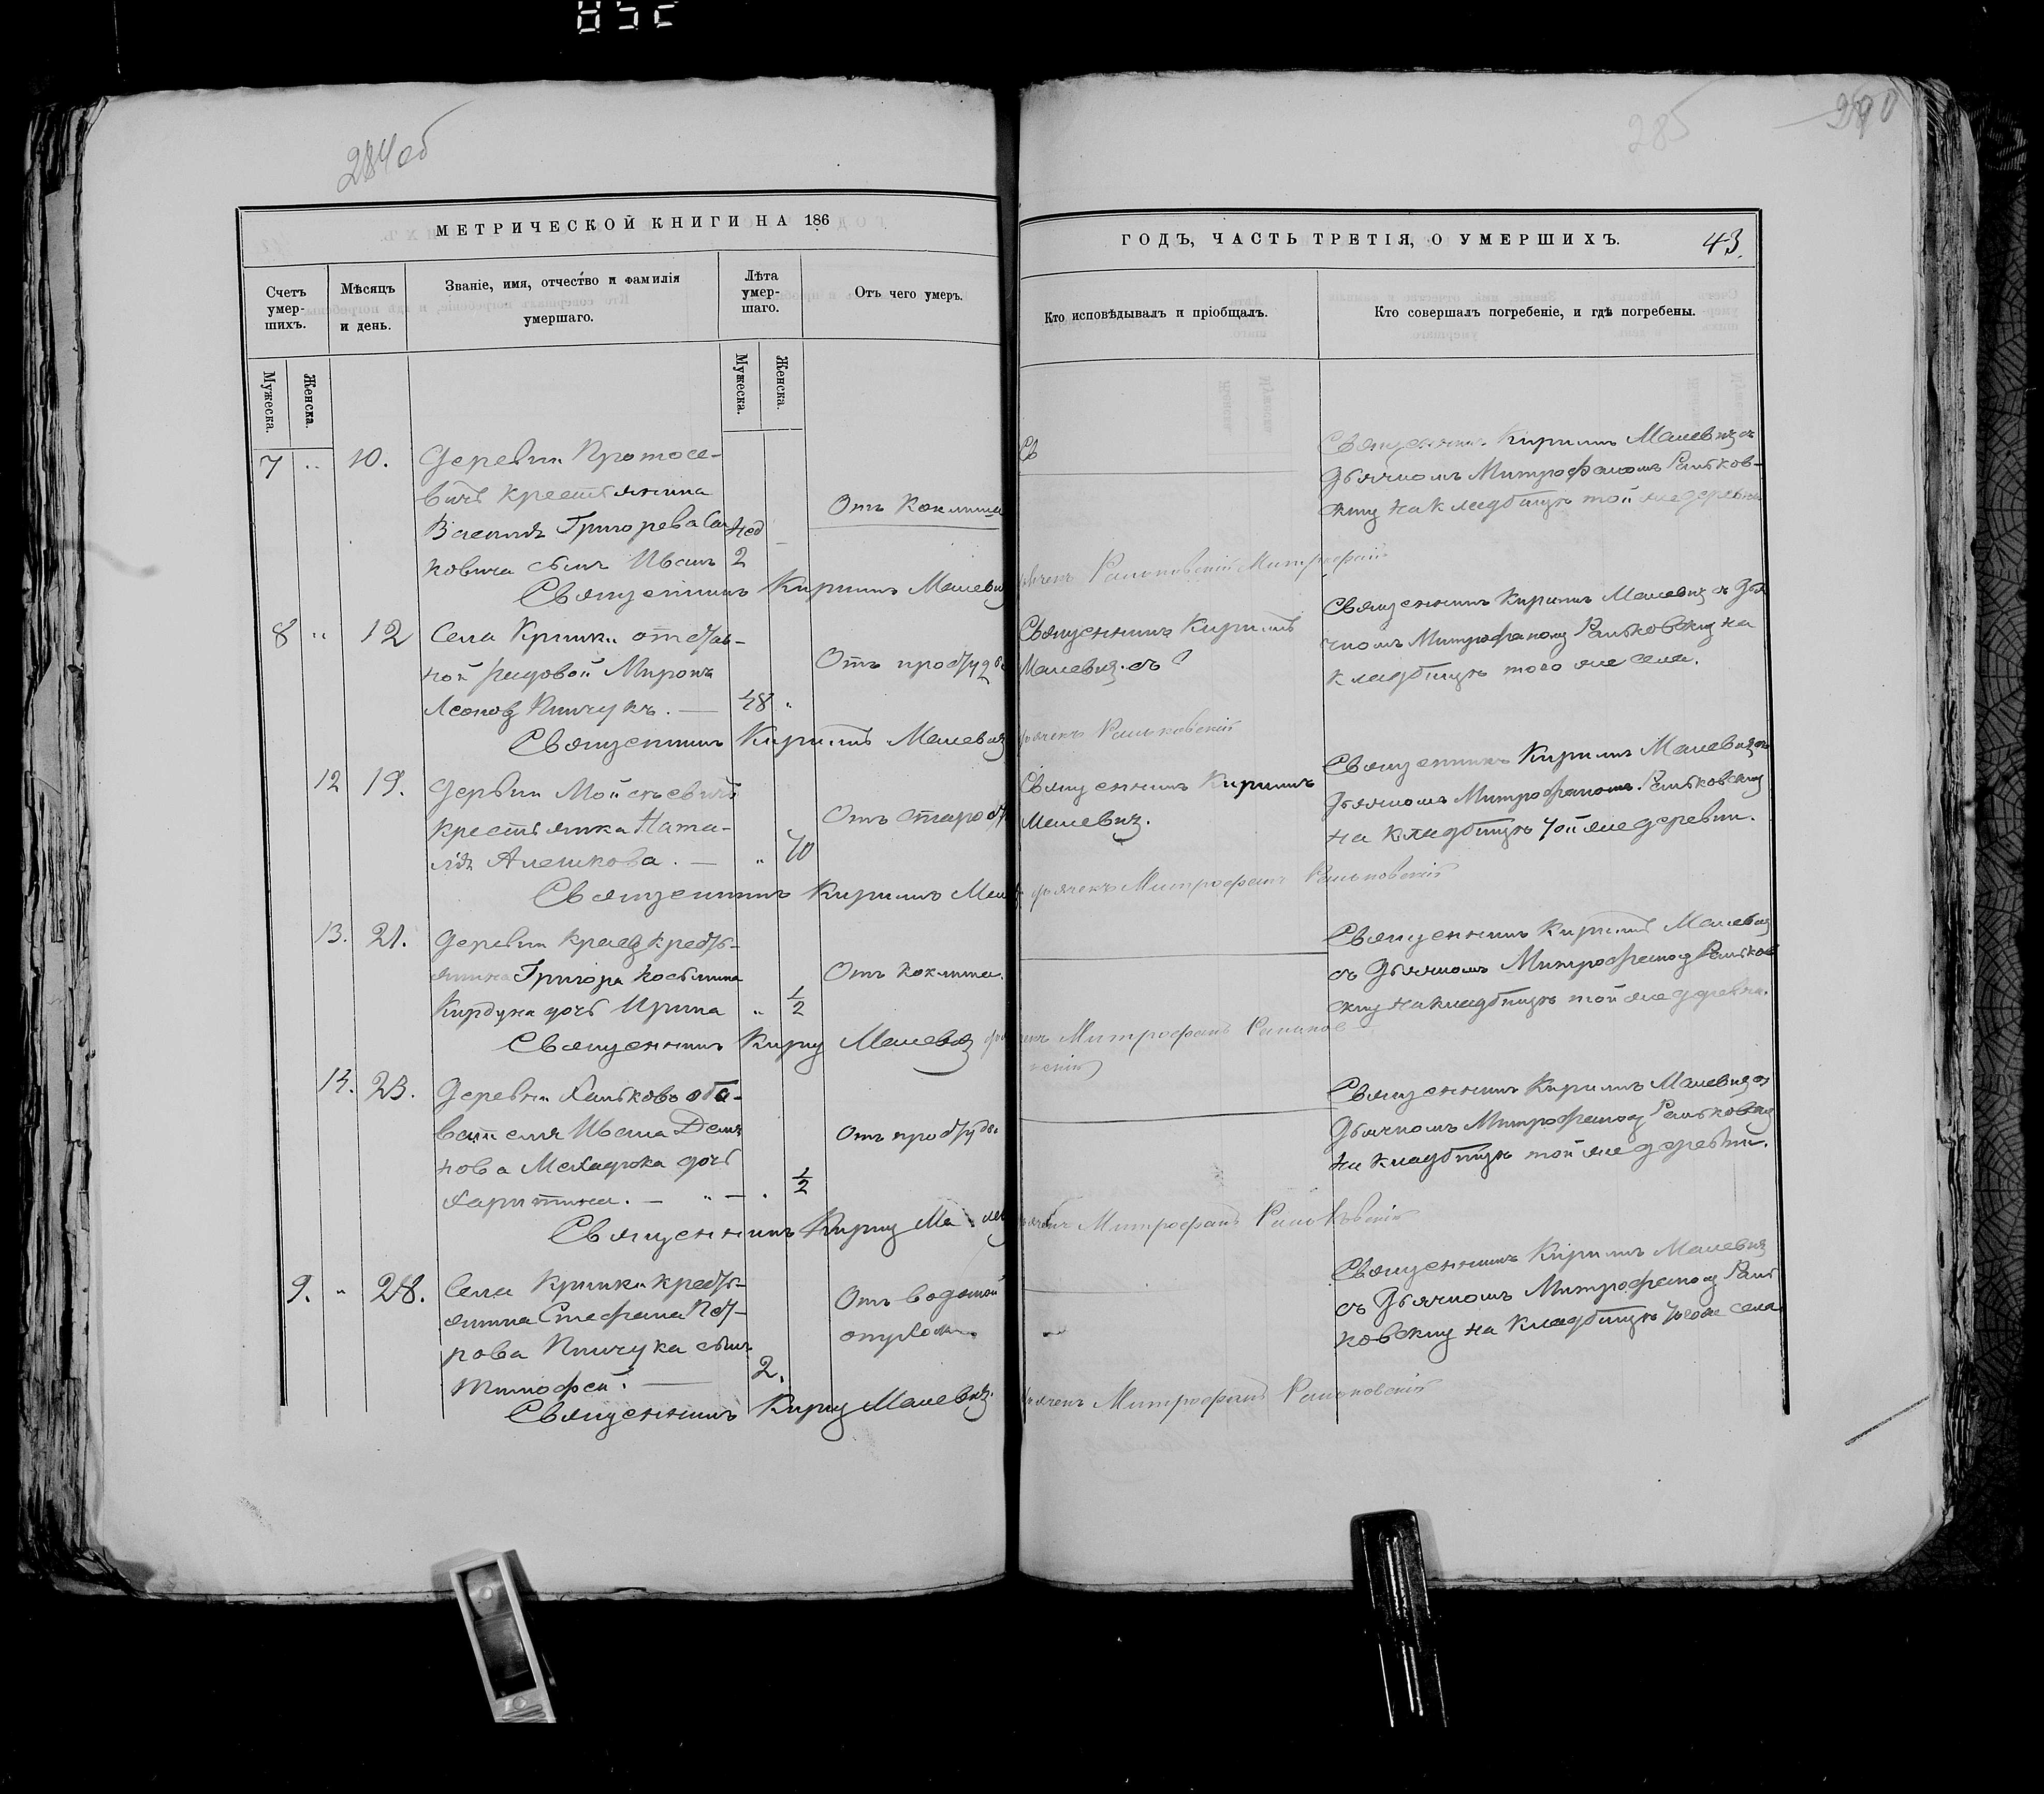 284об
285
290
МЕТРИЧЕСКОЙ КНИГИ НА 186
ГОДЪ, ЧАСТЬ ТРЕТІЯ, О УМЕРШИХЪ.
43.
Счетъ умер-шихъ.
Мѣсяцъ и день.
Званіе, имя, отчество и фамилія умершаго.
Лѣта умер-шаго.
Отъ чего умеръ.
Кто исповѣдывалъ и пріобщалъ.
Кто совершалъ погребеніе, и гдѣ погребены.
Мужеска.
Женска.
Мужеска.
Женска.
7 " 10. Деревни Протосе-
вичъ крестьянина
Василія Григорьева
ковича сынъ Иванъ
нед
2
Отъ Коклюша
Св
Священникъ Кирилъ Малевичъ съ
Дьячкомъ Митрофаномъ Раньков-
скимъ на Кладбищѣ той же деревни
Священникъ Кирилъ Малевичъ
Дьячекъ Раньковскій Митрофанъ
8 " 12 Села Кринки отстав-
ной рядовой Миронъ
Леоновъ Пинчукъ. —
48 "
Отъ простуды
Священникъ Кирилъ
Малевичъ съ
Священникъ Кирилъ Малевичъ съ Дья
чкомъ Митрофаномъ Раньковскимъ на
кладбищѣ того же села.
Священникъ Кирилъ Малевичъ
Дьячекъ Раньковскій
12 19.
крестьянка Ната-
лія Алешкова. —
" 70
Отъ старости
Священникъ Кирилъ
Малевичъ.
Священникъ Кирилъ Малевичъ съ
Дьячкомъ Митрофаномъ Раньковскимъ
на кладбищѣ той же деревни.
Священникъ Кирилъ
Дьячекъ Митрофанъ Раньковскій
13. 21. Деревни крес-
тьянина Григора Косьмина
Кирдуна дочь Ирина
" 1/2
Отъ коклюша.
Священникъ Кирилъ Малевичъ
съ Дьячкомъ Митрофаномъ Раньков
скимъ на кладбищѣ той же деревни.
Священникъ Кирилъ Малевичъ
Дьячекъ Митрофанъ Раньков
скій
14. 23. Деревни Хальково обы-
вателя Ивана Демя
нова дочь
Харитина. — " — .
1/2
Отъ простуды.
Священникъ Кирилъ Малевичъ съ
Дьячкомъ Митрофаномъ Раньковскимъ
на кладбищѣ той же деревни.
Священникъ Кирилъ Малевичъ
Дьячекъ Митрофанъ Раньковскій
9. " 28. Села Кринки кресть-
янина Стефана Пет-
рова Пинчука сынъ
Тимофей. —
2.
Отъ водяной
опухоли
Священникъ Кирилъ Малевичъ
съ Дьячкомъ Митрофаномъ Рань
ковскимъ на кладбищѣ того же села
Священникъ Кирилъ Малевичъ.
Дьячекъ Митрофанъ Раньковскій